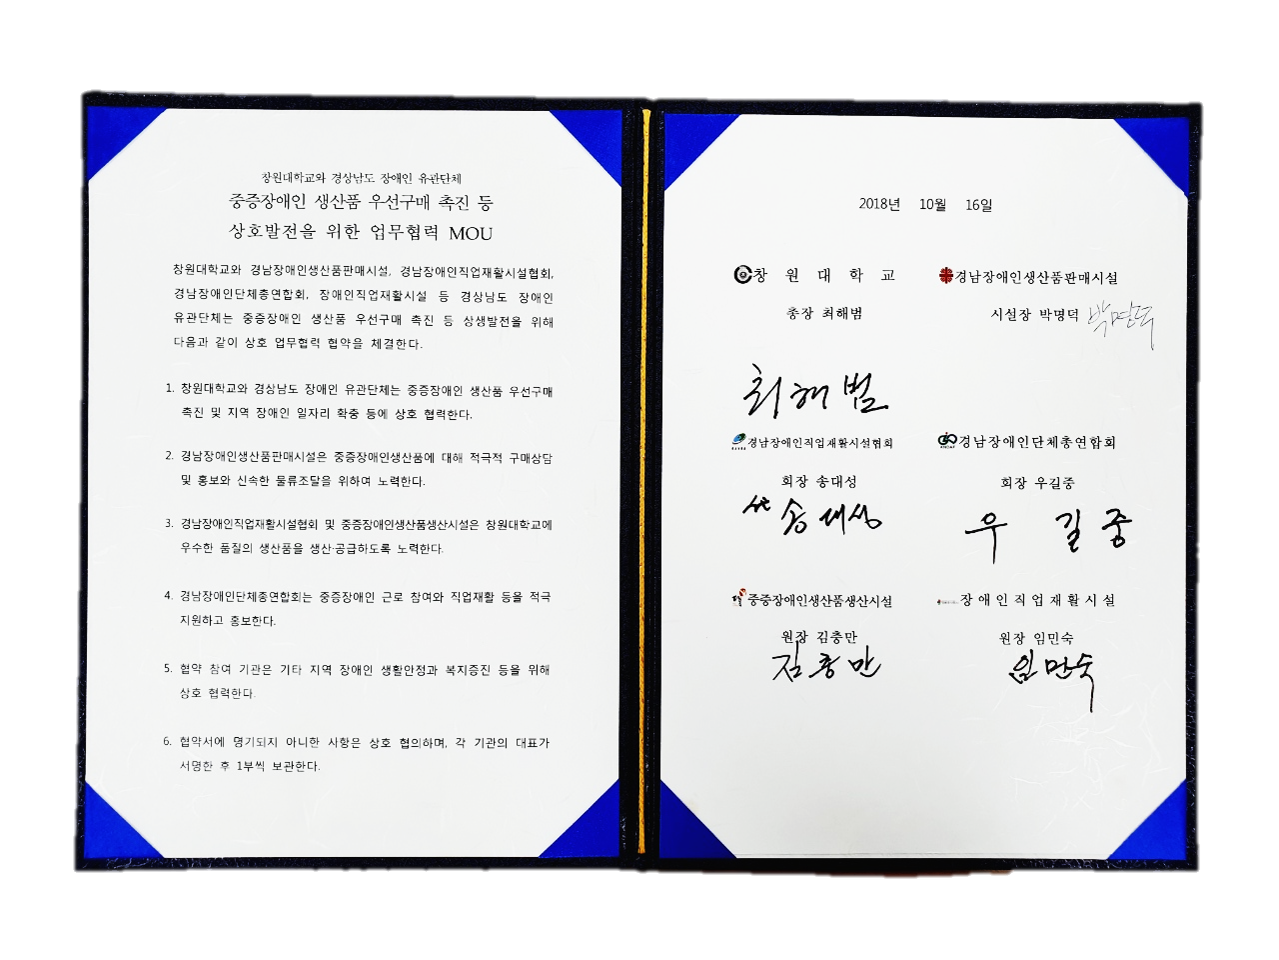 창원대학교와 경상남도 장애인 유관단체
중증장애인 생산품 우선구매 촉진 등
상호발전을 위한 업무협력 MOU
창원대학교와 경남장애인생산품판매시설, 경남장애인직업재활시설협회,
경남장애인단체총연합회, 장애인직업재활시설 등 경상남도 장애인
유관단체는 중증장애인 생산품 우선구매 촉진 등 상생발전을 위해
다음과 같이 상호 업무협력 협약을 체결한다.
1. 창원대학교와 경상남도 장애인 유관단체는 중증장애인 생산품 우선구매
촉진 및 지역 장애인 일자리 확충 등에 상호 협력한다.
2. 경남장애인생산품판매시설은 중증장애인생산품에 대해 적극적 구매상담
및 홍보와 신속한 물류조달을 위하여 노력한다.
3. 경남장애인직업재활시설협회 및 중증장애인생산품생산시설은 창원대학교에
우수한 품질의 생산품을 생산·공급하도록 노력한다.
4. 경남장애인단체총연합회는 중증장애인 근로 참여와 직업재활 등을 적극
지원하고 홍보한다.
5. 협약 참여 기관은 기타 지역 장애인 생활안정과 복지증진 등을 위해
상호 협력한다.
6. 협약서에 명기되지 아니한 사항은 상호 협의하며, 각 기관의 대표가
서명한 후 1부씩 보관한다.
2018년 10월 16일
창 원 대 학 교
총장 최해범
최해범
경남장애인생산품판매시설
시설장 박명덕 박명덕
경남장애인직업재활시설협회
회장 송대성
송대성
경남장애인단체총연합회
회장 우길중
우 길 중
중증장애인생산품생산시설
원장 김충만
김충만
장애인직업재활시설
원장 임민숙
임민숙